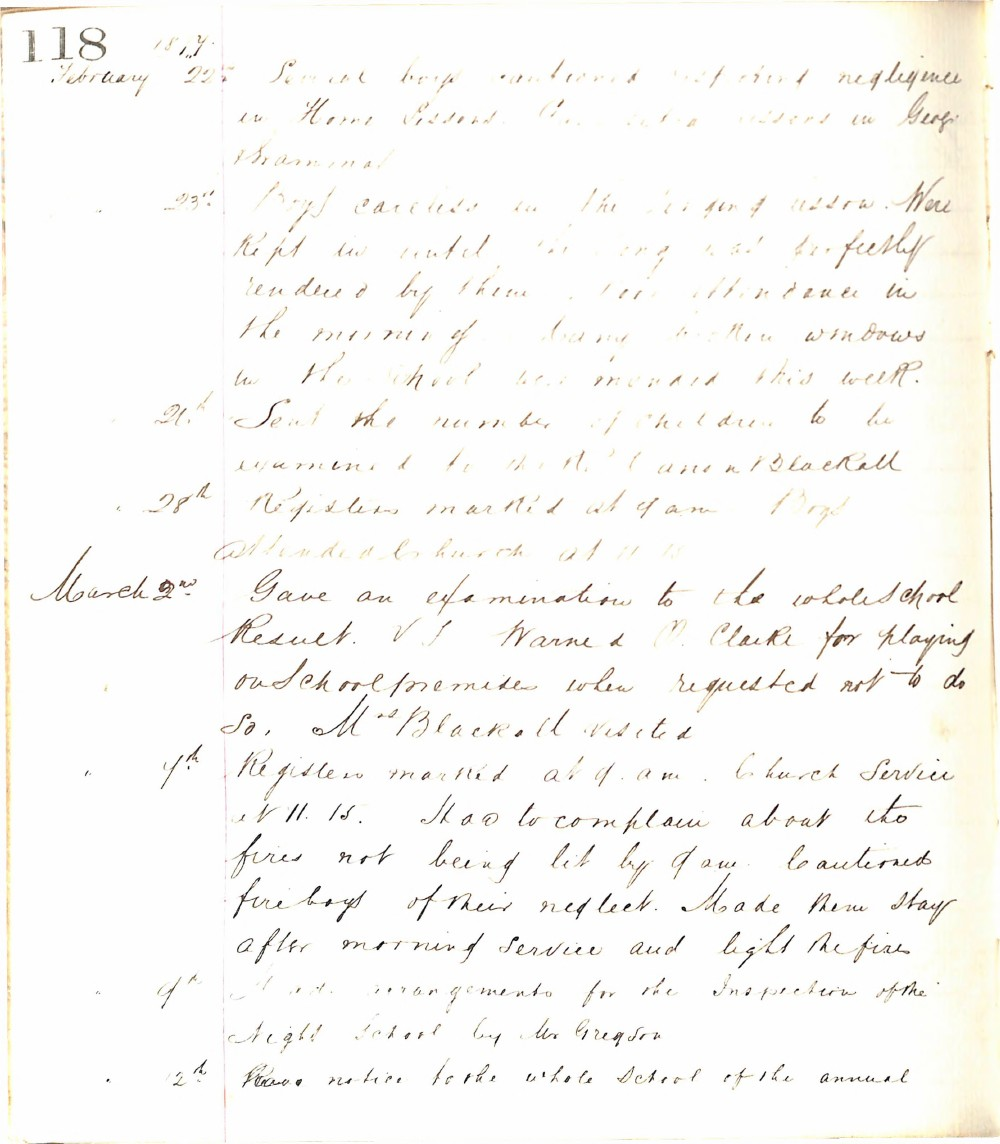 118
February 22nd Several boys cautioned respecting negligence
in Home Lessons. lessons in Geog
& Grammar
" 23rd Boys careless in the singing lesson. Were
Kept in until the song was perfectly
rendered by them. attendance in
the morning. Many broken windows
in the School were mended this week.
" Sent the number of children to be
examined to the Revd Canon Blackall
" 28th Registers marked at 9 am Boys
attended Church at 11.15
March 2nd Gave an examination to the whole School
Result. Warned Clarke for playing
on School premises when requested not to do
So. Mrs Blackall visited
" 7th Registers marked at 9. am. Church Service
at 11. 15. Had to complain about the
fires not being lit by 9 am. Cautioned
fire boys of their neglect. Made them stay
after morning service and light the fires
" 9th Made arrangements for the Inspection of the
Night School by Mr Gregson
" 12th notice to the whole School of the annual